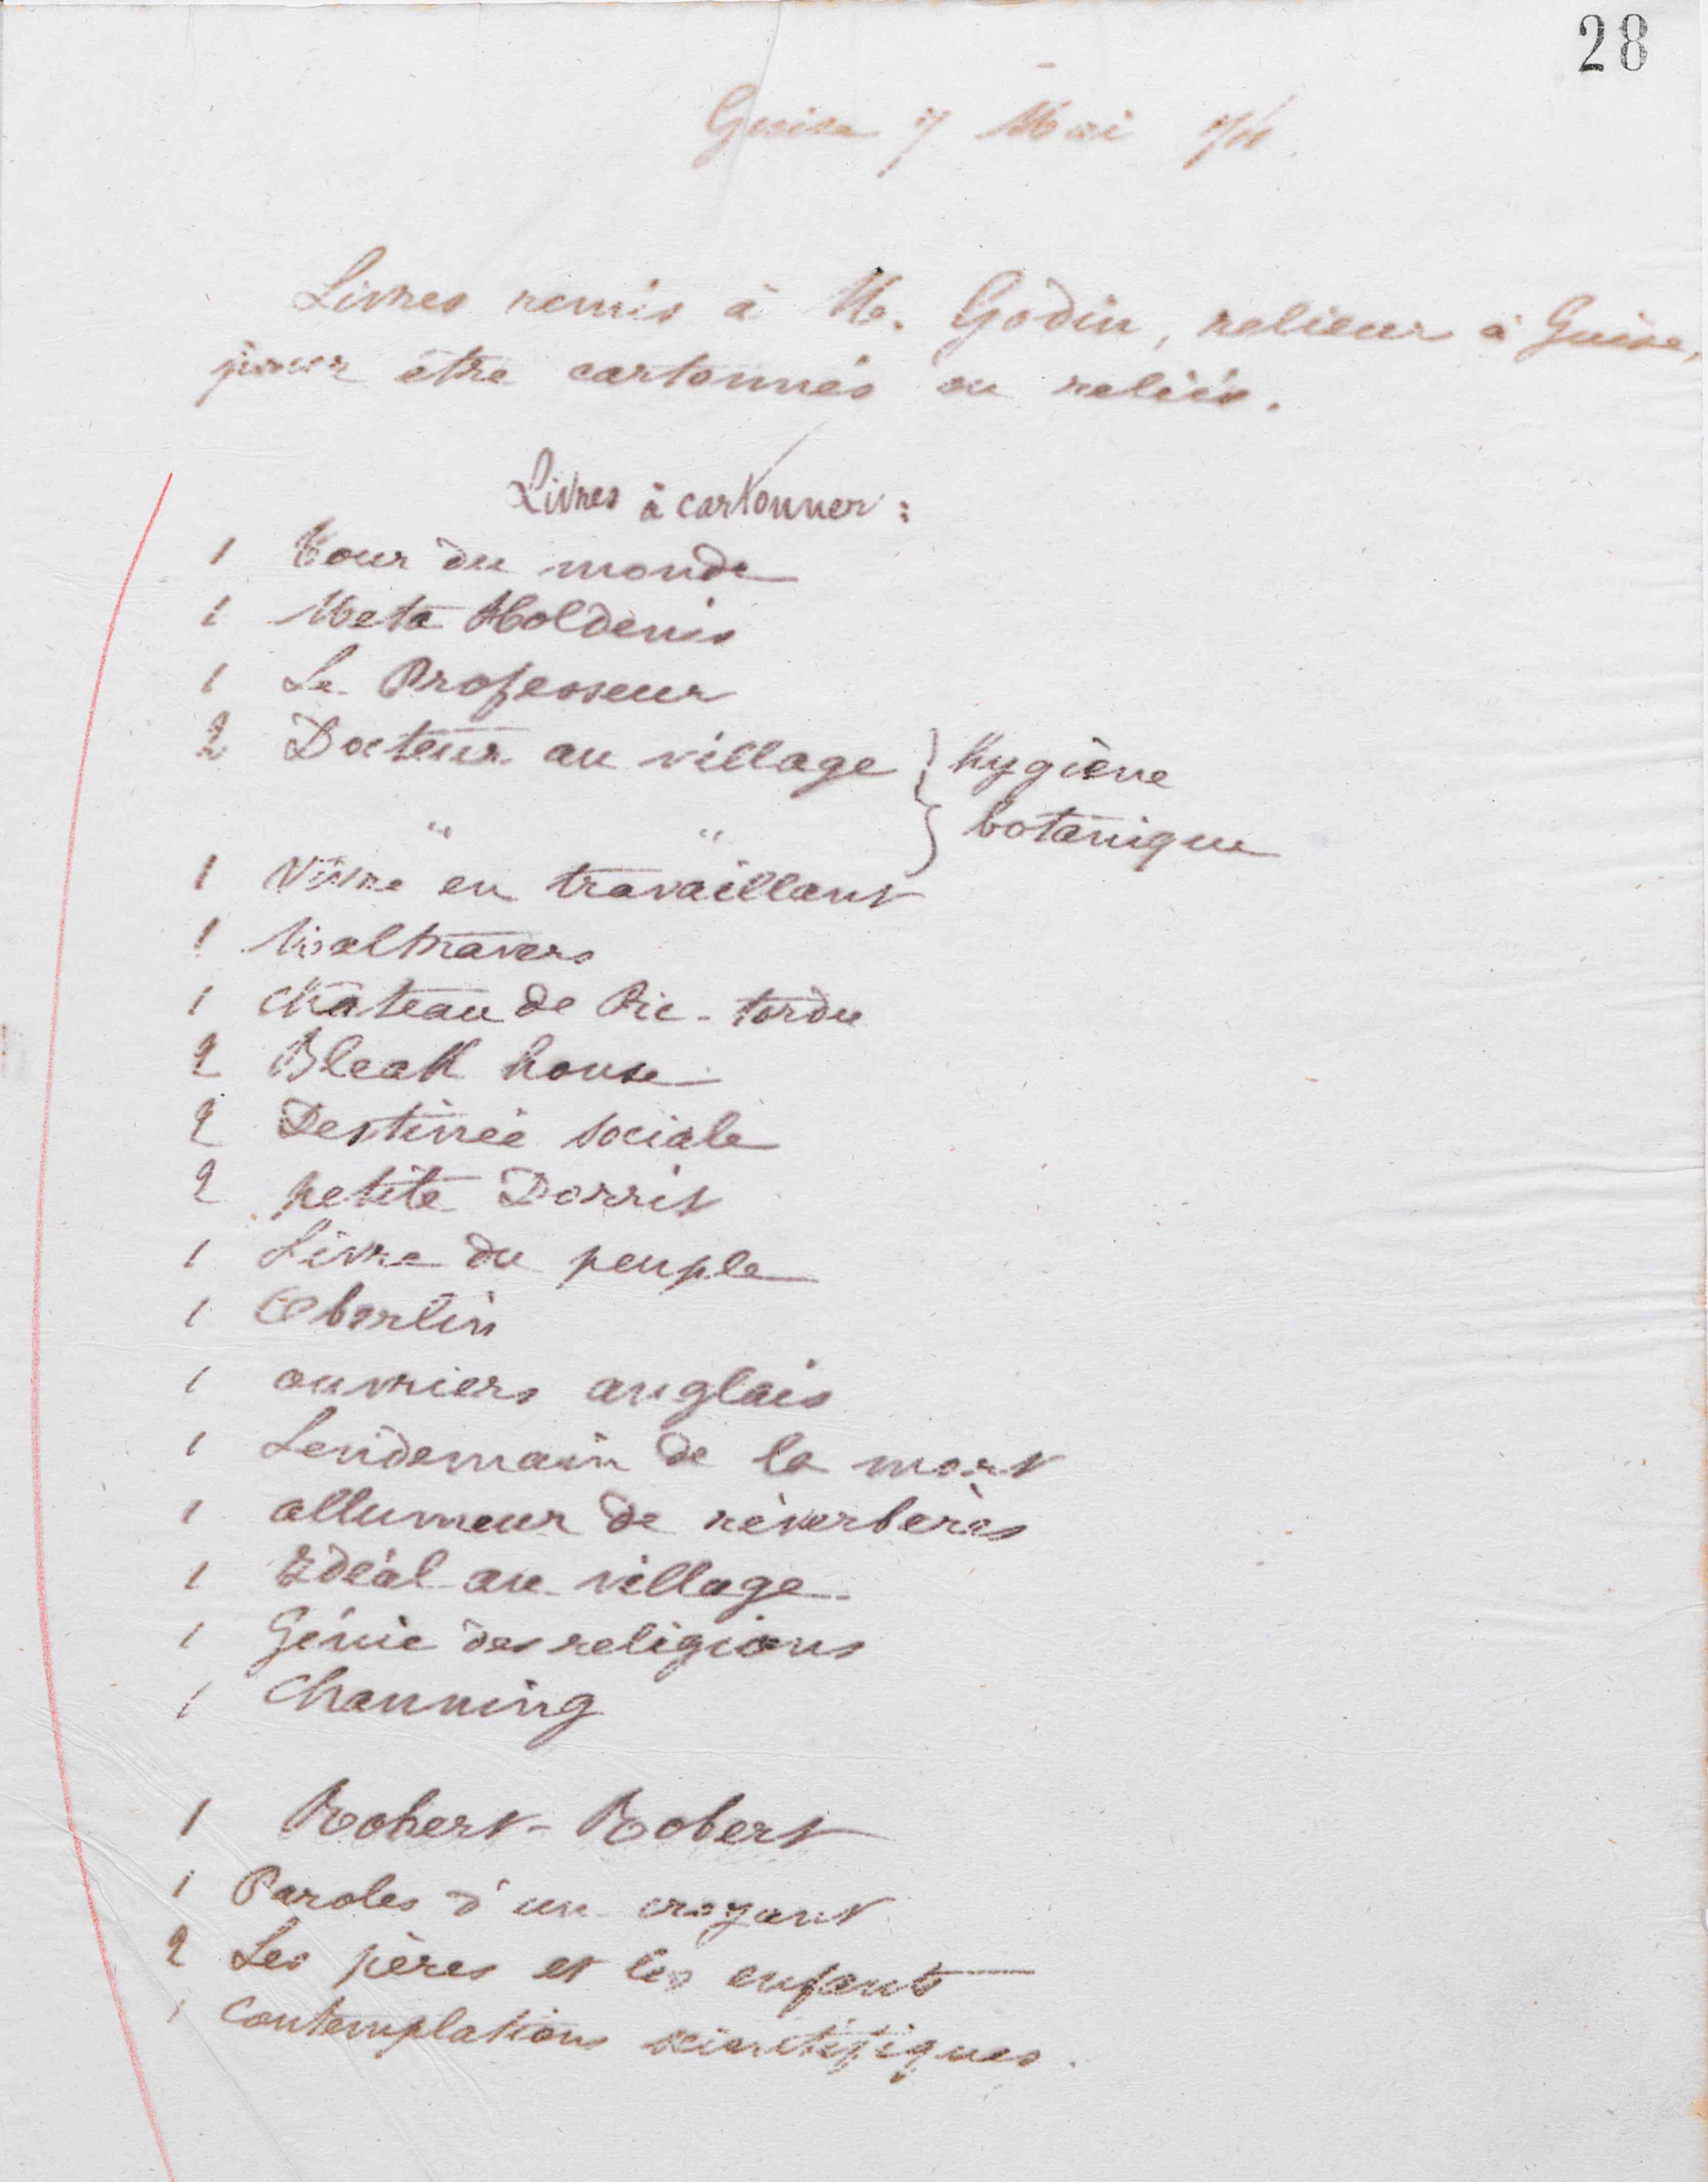 28
Guise 7 Mai
Livres remis à M. Godin, relieur à Guise,
pour être cartonnés ou reliés.
Livres à cartonner :
1 Tour du monde
1 Meta Holdenis
1 Le Professeur
2 Docteur au village } hygiène
" " } botanique
1 Vivre en travaillant
1 Maltravers
1 Château de Pic-tordu
2 Bleak house
2 Destinée sociale
2 petite Dorrit
1 Livre du peuple
1 Oberlin
1 ouvriers anglais
1 Lendemain de la mort
1 allumeur de réverbères
1 Idéal au village
1 Génie des religions
1 Channing
1 Robert-Robert
1 Paroles d'un croyant
2 Les pères et les enfants
1 Contemplations scientifiques.